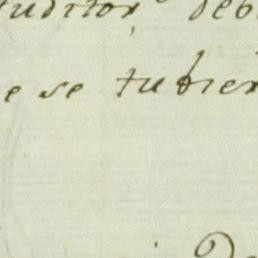 Auditor deb
e se tubier